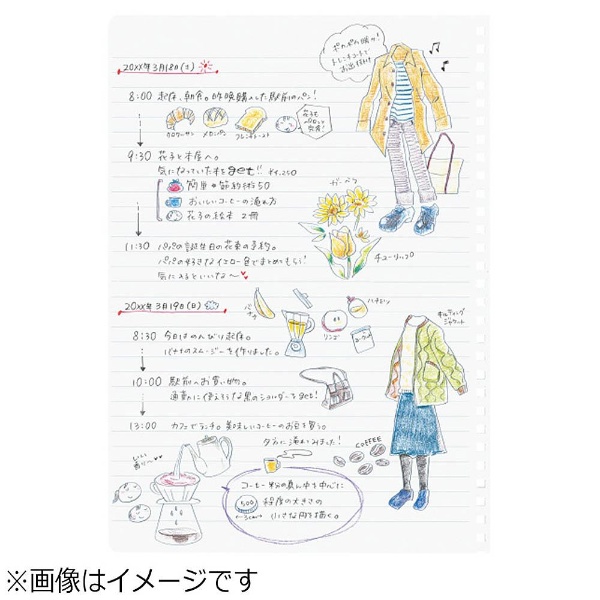 20XX年3月18日(土)
ポカポカ暖か!
トレンチコートで
お出掛け
8:00 起床、朝食。昨晩購入した駅前のパン!
クロワッサン メロンパン フレンチトースト
9:30 花子と本屋へ。
気になっていた本をget!! ¥4,250
簡単節約術50
おいしいコーヒーの淹れ方
花子の絵本 2冊
ガーベラ
11:30 パパの誕生日の花束の予約。
パパの好きなイエロー色でまとめてもらい!
気に入るといいな〜
チューリップ
20XX年3月19日(日)
バナナ
ハチミツ
リンゴ
ヨーグルト
キルティング
ジャケット
8:30 今日はのんびり起床。
バナナのスムージーを作りました。
10:00 駅前へお買い物。
通勤に使えそうな黒のショルダーをget!
13:00 カフェでランチ。美味しいコーヒーのお豆を買う。
夕方に淹れてみました!
COFFEE
いい
香り〜
コーヒー粉の真ん中を中心に
500
程度の大きさの
小さな円を描く。
※画像はイメージです